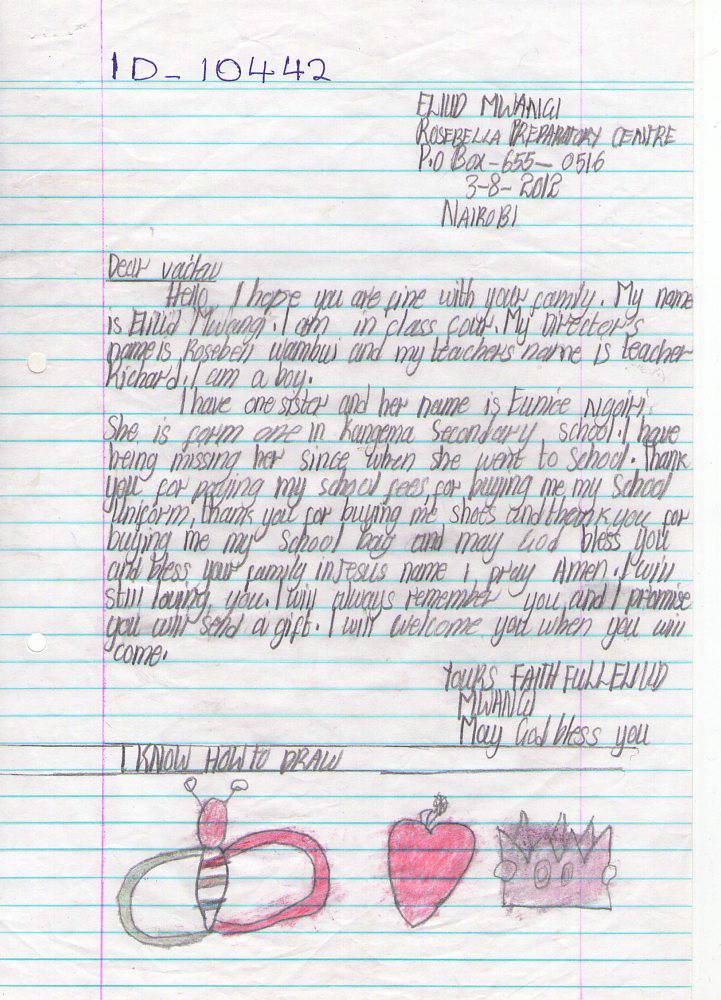 ID- 10442
ELIUD MWANGI
ROSEBELLA PREPARATORY CENTRE
P.O BOX-655- 0516
3-8-2012
NAIROBI
Dear vaclav
Hello, I hope you are fine with your family. My name
is Eliud Mwangi. I am in class four. My Director's
name is Rosebell wambui and my teachers name is teacher
Richard. I am a boy.
I have one sister and her name is Eunice
She is form one in Kangema Secondary school. I have
being missing her since when she went to School. Thank
you for paying my school fees, for buying me my School
Uniform, thank you for buying me shoes and thank you for
buying me my School bag and may God bless you
and bless your family in Jesus name I, pray Amen. I will
still loving, you. I will always remember you, and I promise
you will send a gift. I will welcome you when you will
come.
YOURS FAITHFULL ELIUD
MWANGI
May God bless you
I KNOW HOW TO DRAW